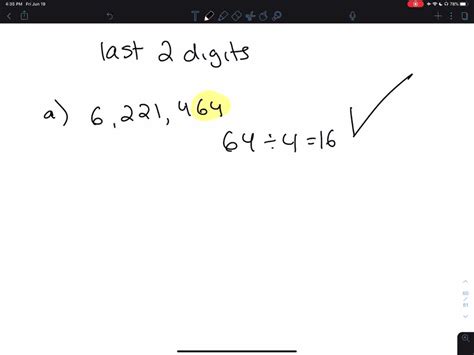 4:35 PM Fri Jun 19
78%
last 2 digits
a) 6,221,464
64÷4=16